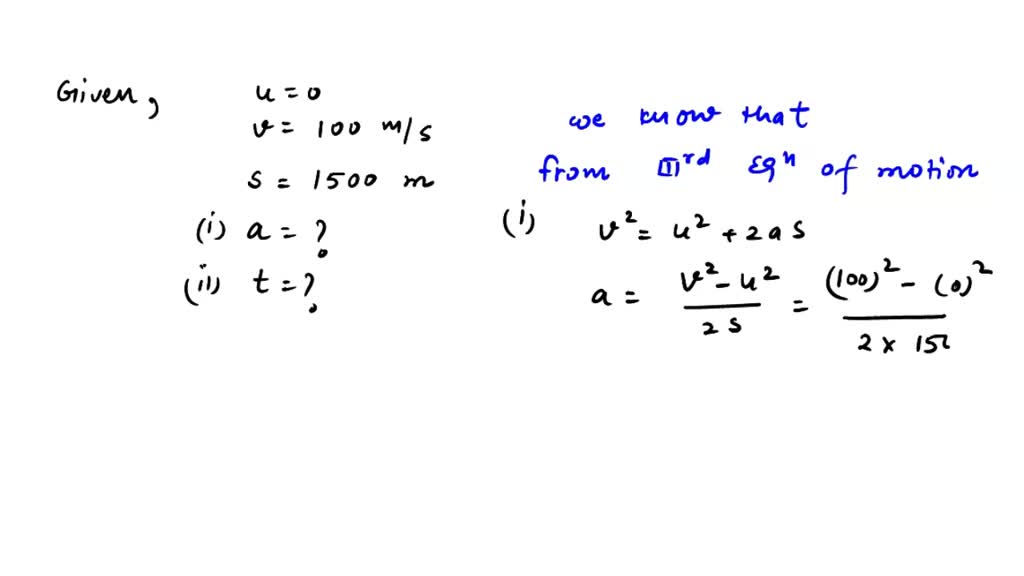 Given,
u = 0
v = 100 m/s
s = 1500 m
(i) a = ?
(ii) t = ?
we know that
from III rd Eqn of motion
(i) v² = u² + 2as
a = v² - u² / 2s = (100)² - (0)² / 2 × 15